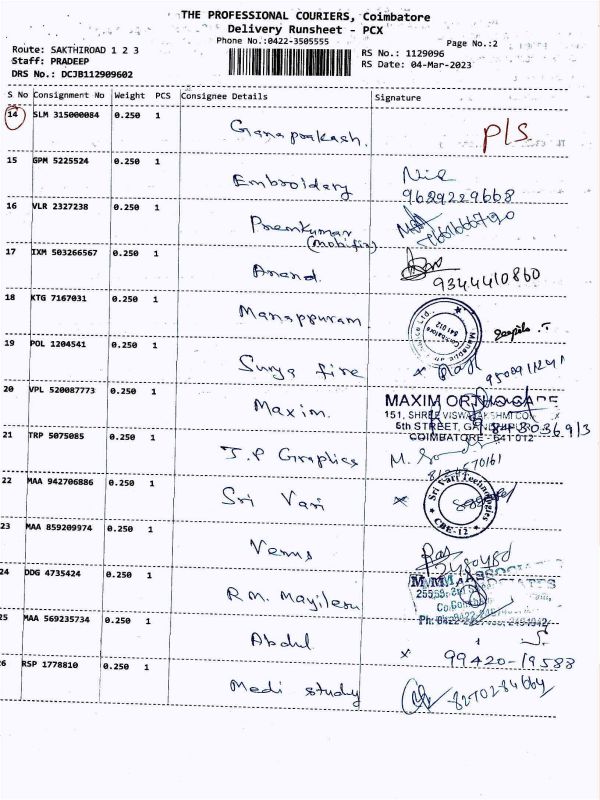 THE PROFESSIONAL COURIERS, Coimbatore
Delivery Runsheet - PCX
Phone No.:0422-3505555
Page No.:2
Route: SAKTHIROAD 1 2 3
RS No.: 1129096
Staff: PRADEEP
RS Date: 04-Mar-2023
DRS No.: DCJB112909602
S No Consignment No Weight PCS Consignee Details Signature
14 SLM 315000084 0.250 1 Ganaprakash. P/S
15 GPM 5225524 0.250 1 Embroidary
9629229668
16 VLR 2327238 0.250 1 Premkumar
(mobifix)
17 IXM 503266567 0.250 1 Anand. 9344410860
18 KTG 7167031 0.250 1 Manappuram
Coimbatore
641 012
19 POL 1204541 0.250 1 Surya fire
20 VPL 520087773 0.250 1 Maxim.
MAXIM ORTHOCARE
5th STREET,
COIMBATORE - 641 012
21 TRP 5075085 0.250 1 J.P Graphics
22 MAA 942706886 0.250 1 Sri Vari
Sri Vari Technologies
CBE-12
23 MAA 859209974 0.250 1 Venus
24 DDG 4735424 0.250 1 R.M. Mayileru
25 MAA 569235734 0.250 1 Abdul
99420-19588
26 RSP 1778810 0.250 1 Medi study